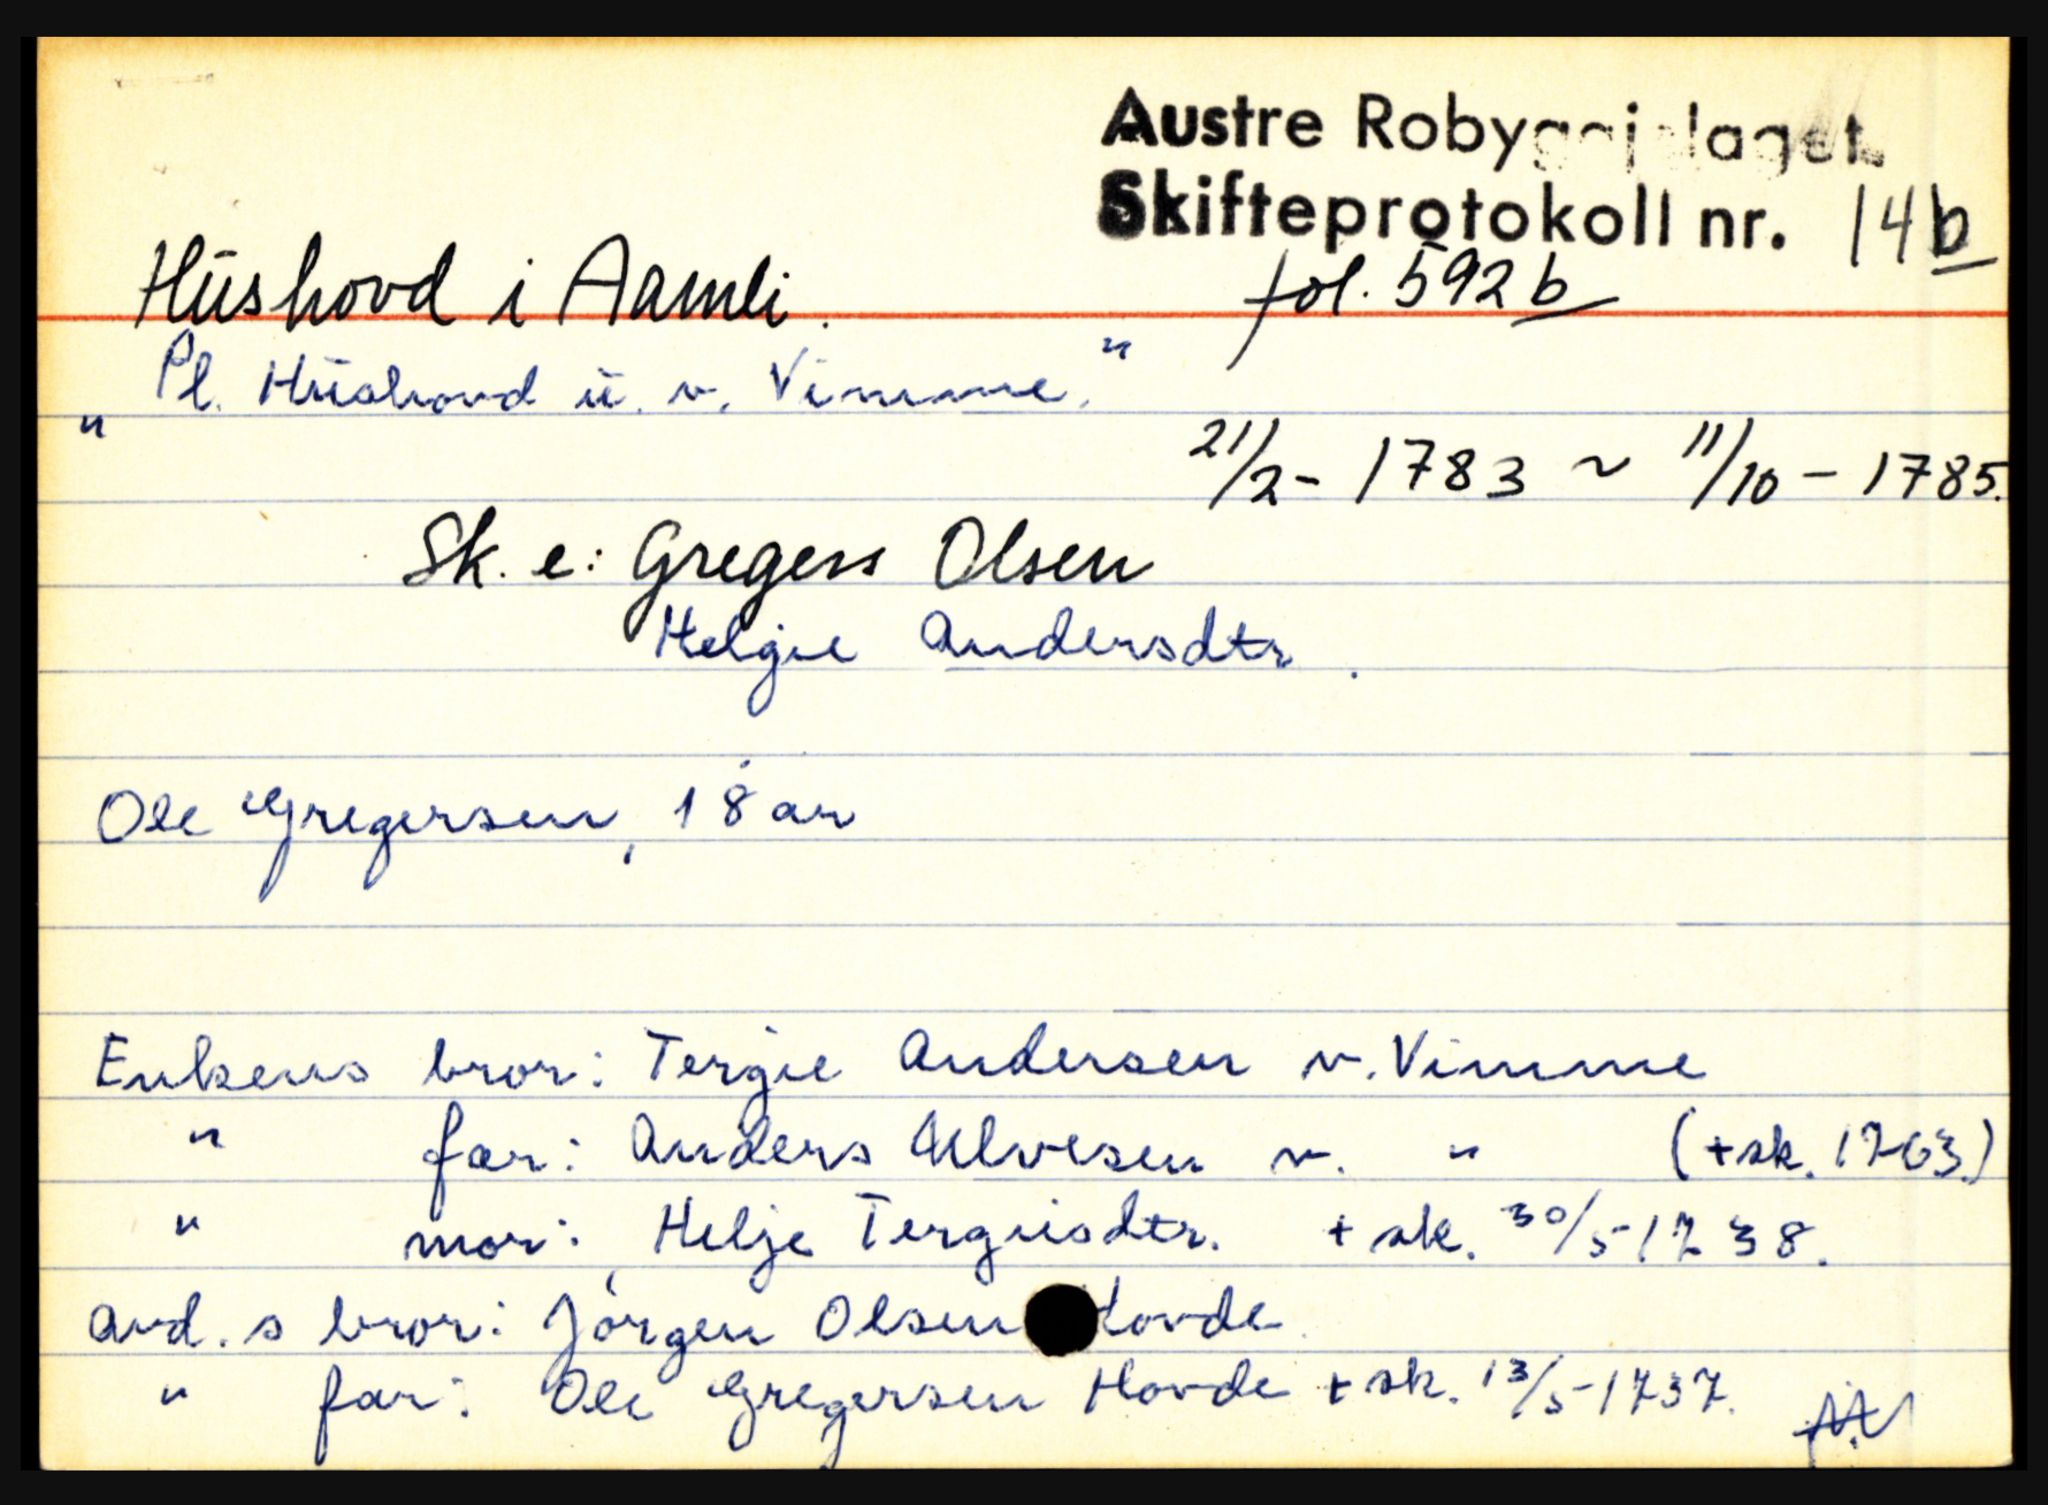 Austre Robyggjelaget.
Skifteprotokoll nr. 14b
Hüshovd i Aamli. fol. 592b
"Pl. Hüshovd ü. v. Vimme."
21/2 - 1783 ~ 11/10 - 1785.
Sk. e: Gregers Olsen
Helgie Andersdtr.
Ole Gregersen, 18 år
Enkens bror: Tergie Andersen v. Vimme
" far: Anders Ulvesen v. " (+ sk. 1763)
" mor: Helje Tergiisdtr. + sk. 30/5-1738.
Avd. s bror: Jörgen Olsen Hovde.
" far: Ole Gregersen Hovde + sk. 13/5-1737.